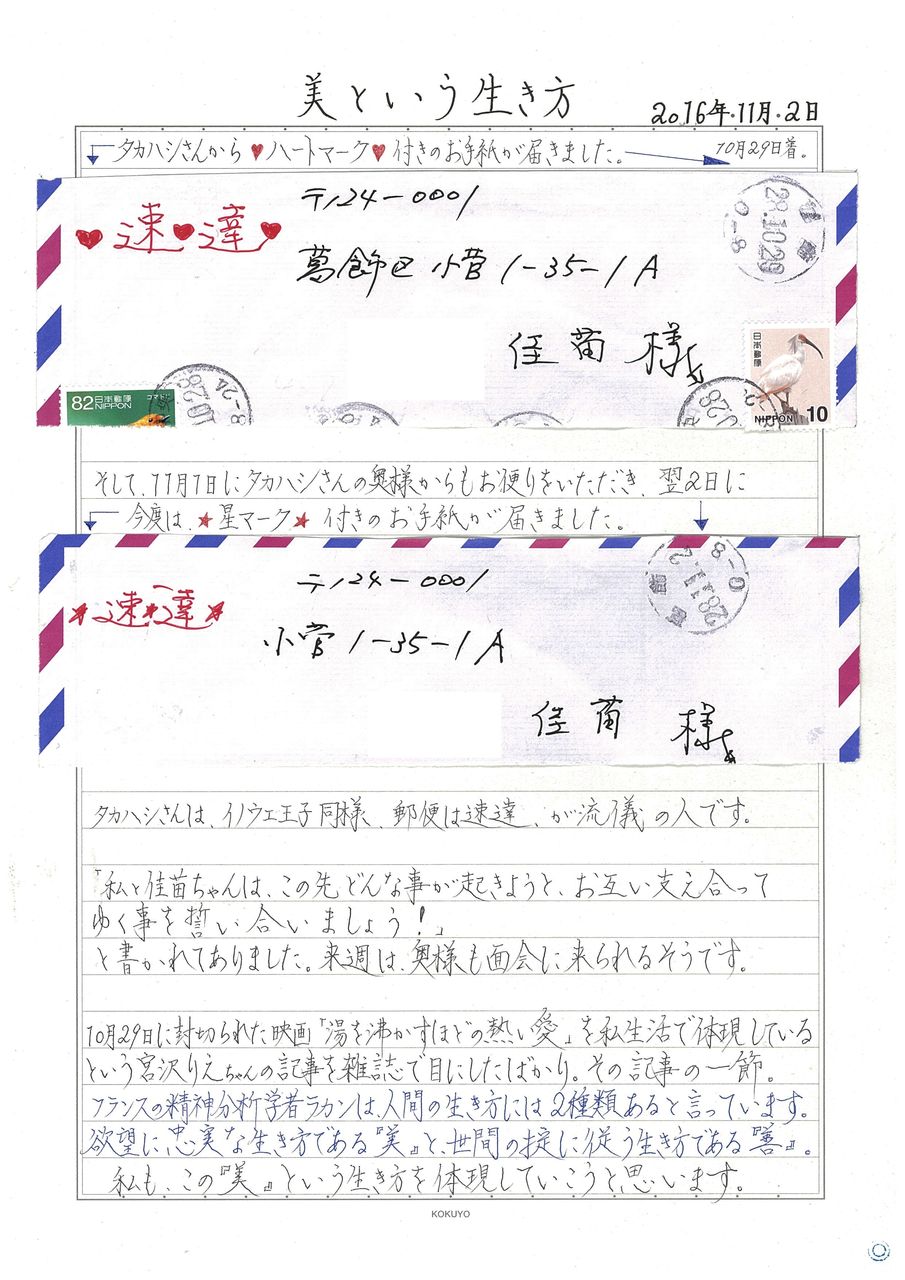 美という生き方
2016年・11月・2日
タカハシさんから♥ハートマーク♥付きのお手紙が届きました。
10月29日着。
〒124-0001
♥速♥達♥
28.10.29
0-8
葛飾区小菅1-35-1A
佳苗様
日本郵便
NIPPON 10
82 日本郵便
NIPPON
そして、11月1日にタカハシさんの奥様からもお便りをいただき、翌2日に
今度は、★星マーク★付きのお手紙が届きました。
〒124-0001
★速★達★
28.11.2
0-8
小菅1-35-1A
佳苗様
タカハシさんは、イノウエ王子同様、郵便は速達、が流儀の人です。
「私と佳苗ちゃんは、この先どんな事が起きようと、お互い支え合って
ゆく事を誓い合いましょう!」
と書かれてありました。来週は、奥様も面会に来られるそうです。
10月29日に封切られた映画「湯を沸かすほどの熱い愛」を私生活で体現している
という宮沢りえちゃんの記事を雑誌で目にしたばかり。その記事の一節。
フランスの精神分析学者ラカンは、人間の生き方には2種類あると言っています。
欲望に忠実な生き方である『美』と、世間の掟に従う生き方である『善』。
私も、この『美』という生き方を体現していこうと思います。
KOKUYO